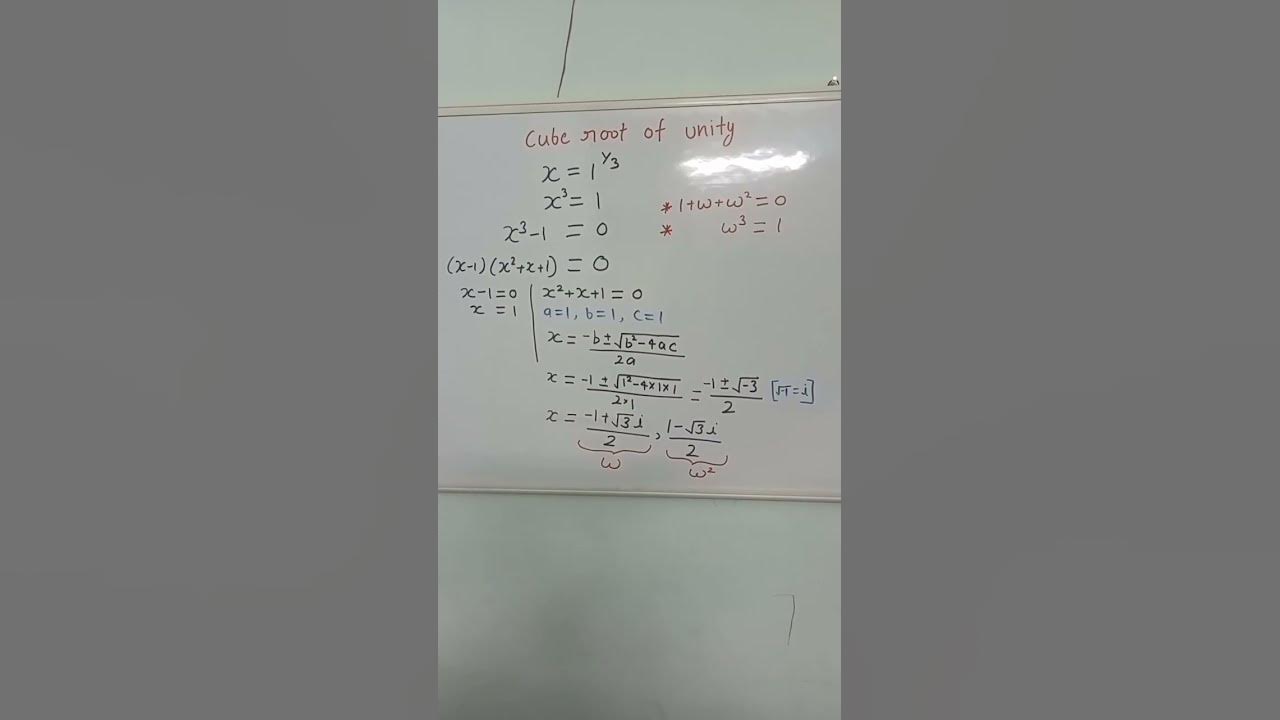 Cube root of unity
x = 1^1/3
x³ = 1
x³-1 = 0
* 1+ω+ω² = 0
* ω³ = 1
(x-1)(x²+x+1) = 0
x-1=0
x = 1
x²+x+1 = 0
a=1, b=1, c=1
x = -b±√b²-4ac / 2a
x = -1±√1²-4×1×1 / 2×1 = -1±√-3 / 2 [√-1=i]
x = -1+√3i / 2 , 1-√3i / 2
ω ω²